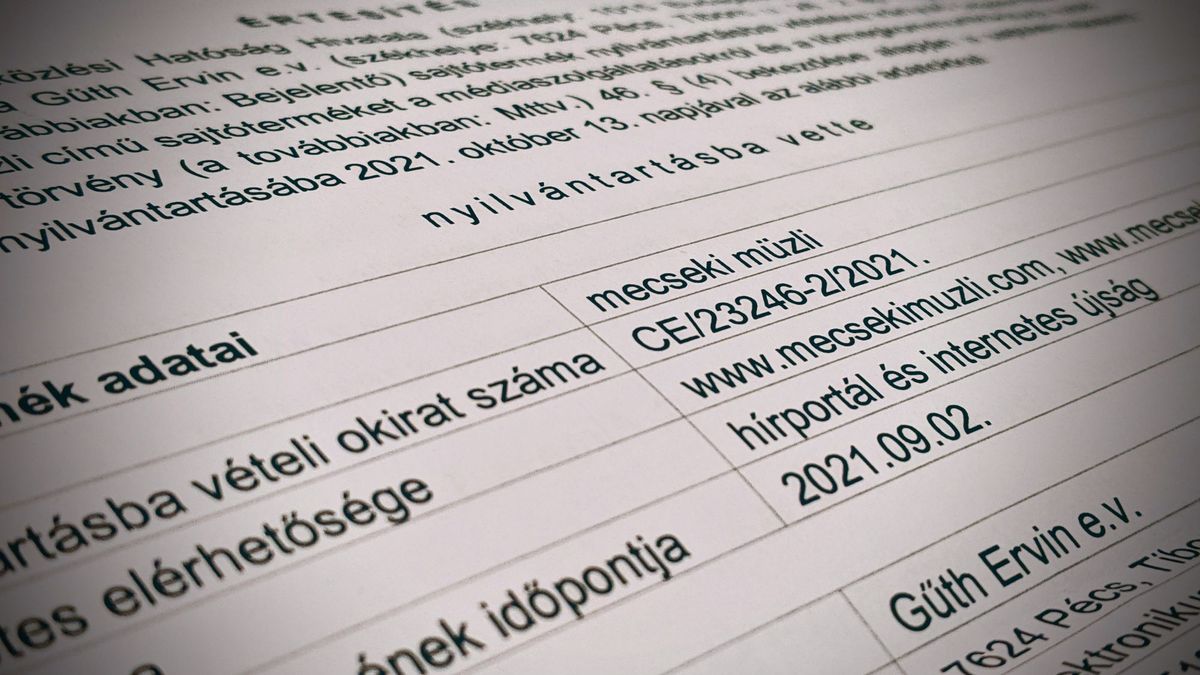 ÉRTESÍTÉS
Közlési Hatóság Hivatala (székhely:
a Gűth Ervin e.v. (székhelye: 7624 Pécs, Tibor
ábbiakban: Bejelentő) sajtótermék nyilvántartásba
zli című sajtóterméket a médiaszolgáltatásokról és a tömegkommunikáció
törvény (a továbbiakban: Mttv.) 46. § (4) bekezdése alapján a
nyilvántartásába 2021. október 13. napjával az alábbi adatokkal
nyilvántartásba vette
nék adatai
mecseki müzli
artásba vételi okirat száma CE/23246-2/2021.
tes elérhetősége www.mecsekimuzli.com, www.mecse
hírportál és internetes újság
ének időpontja 2021.09.02.
Gűth Ervin e.v.
7624 Pécs, Tibo
ektroniku